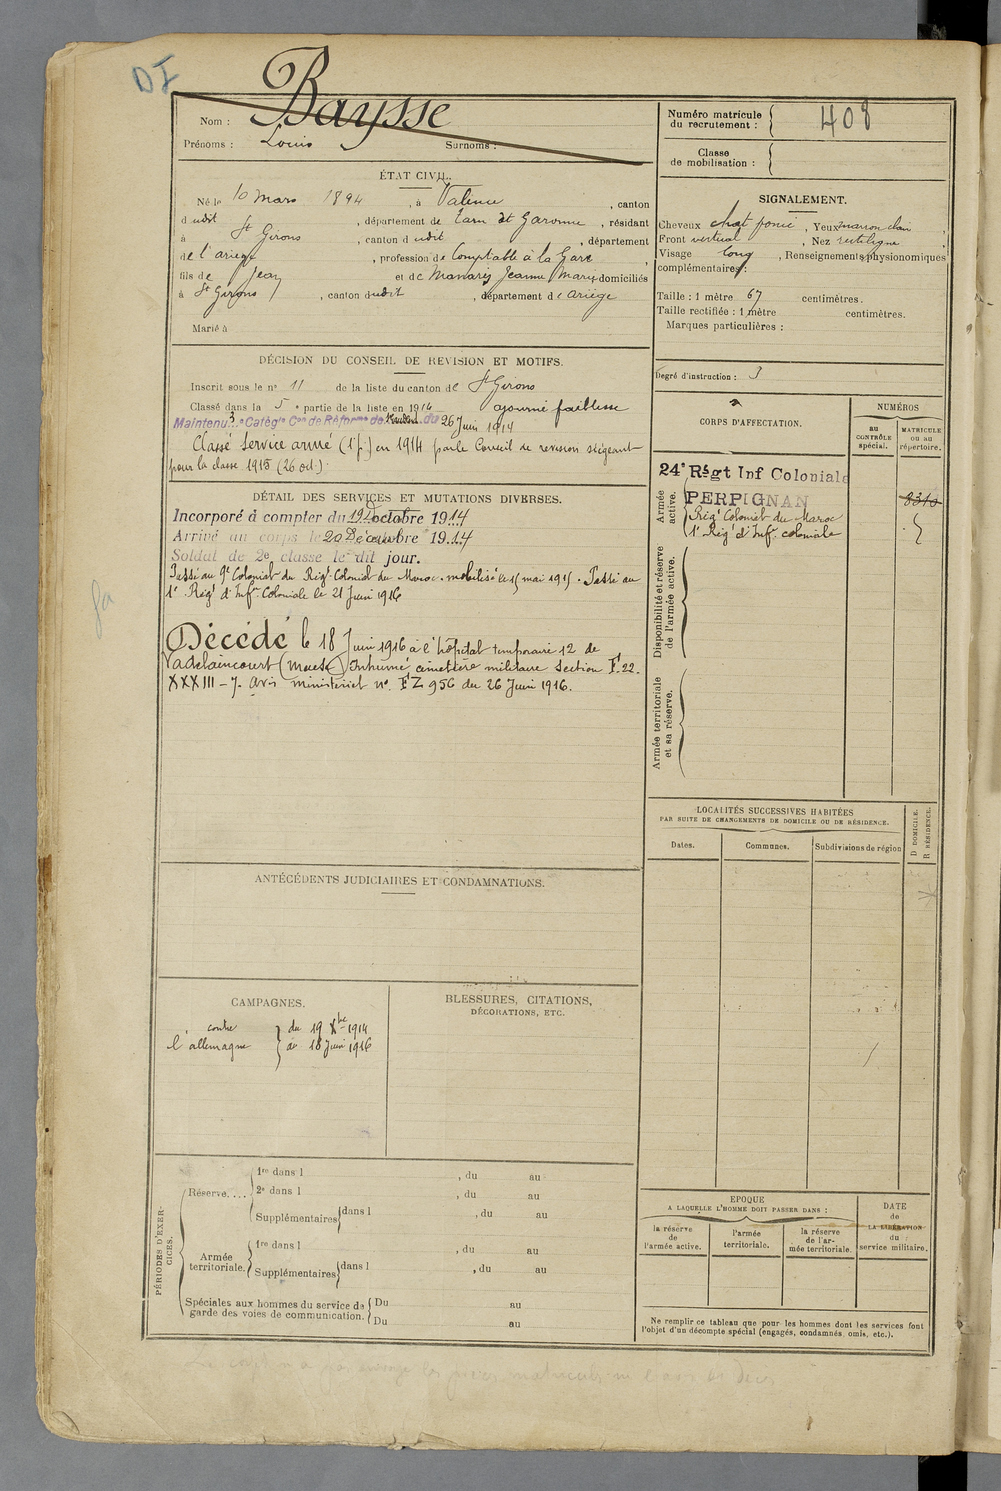 DI
Nom : Baysse
Prénoms : Louis Surnoms :
Numéro matricule du recrutement : 408
Classe de mobilisation :
ÉTAT CIVIL.
Né le 10 mars 1894, à Valence, canton
dudit, département de Tarn et Garonne, résidant
à St Girons, canton dudit, département
de l'ariège, profession de Comptable à la Gare
fils de Jean et de Manaris Jeanne Marie domiciliés
à St Girons, canton dudit, département de Ariège
Marié à
SIGNALEMENT.
Cheveux chat foncé, Yeux marron clair
Front vertical, Nez rectiligne
Visage long, Renseignements physionomiques
complémentaires :
Taille : 1 mètre 67 centimètres.
Taille rectifiée : 1 mètre centimètres.
Marques particulières :
Degré d'instruction : 3
DÉCISION DU CONSEIL DE REVISION ET MOTIFS.
Inscrit sous le n° 11 de la liste du canton de St Girons
Classé dans la 5e partie de la liste en 1914 ajourné faiblesse
Maintenu 3e Catégie Con de Réforme de du 26 Juin 1914
Classé Service armé (1e p.) en 1914 par le Conseil de revision siégeant
pour la classe 1915 (26 oct.)
DÉTAIL DES SERVICES ET MUTATIONS DIVERSES.
Incorporé à compter du 19 octobre 1914
Arrivé au corps le 20 Décembre 1914
Soldat de 2e classe le dit jour.
Passé au 9e Colonial du Régt Colonial du Maroc. mobilisé le 15 mai 1915. Passé au
1er Régt d'Infie Coloniale le 21 Juin 1916
Décédé le 18 Juin 1916 à l'hôpital temporaire 12 de
Vadelaincourt (Meuse) Inhumé cimetière militaire Section F. 22.
XXXIII - 7. Avis ministériel n° FZ 956 du 26 Juin 1916.
CORPS D'AFFECTATION.
NUMÉROS
AU CONTRÔLE spécial.
MATRICULE ou au répertoire.
Armée active.
24e Régt Inf Coloniale
PERPIGNAN
8310
Régt Colonial du Maroc
1er Régt d'Infie coloniale
Disponibilité et réserve de l'armée active.
Armée territoriale et sa réserve.
LOCALITÉS SUCCESSIVES HABITÉES
PAR SUITE DE CHANGEMENTS DE DOMICILE OU DE RÉSIDENCE.
Dates. Communes. Subdivisions de région
D DOMICILE.
R RÉSIDENCE.
ANTÉCÉDENTS JUDICIAIRES ET CONDAMNATIONS.
CAMPAGNES.
contre du 19 Xbre 1914
l'allemagne au 18 Juin 1916
BLESSURES, CITATIONS,
DÉCORATIONS, ETC.
PÉRIODES D'EXERCICES.
Réserve....
1re dans l , du au
2e dans l , du au
Supplémentaires dans l , du au
Armée territoriale.
1re dans l , du au
Supplémentaires dans l , du au
Spéciales aux hommes du service de garde des voies de communication.
Du au
Du au
EPOQUE
A LAQUELLE L'HOMME DOIT PASSER DANS :
la réserve de l'armée active.
l'armée territoriale.
la réserve de l'armée territoriale.
DATE de LA LIBÉRATION du service militaire.
Ne remplir ce tableau que pour les hommes dont les services font
l'objet d'un décompte spécial (engagés, condamnés, omis, etc.).